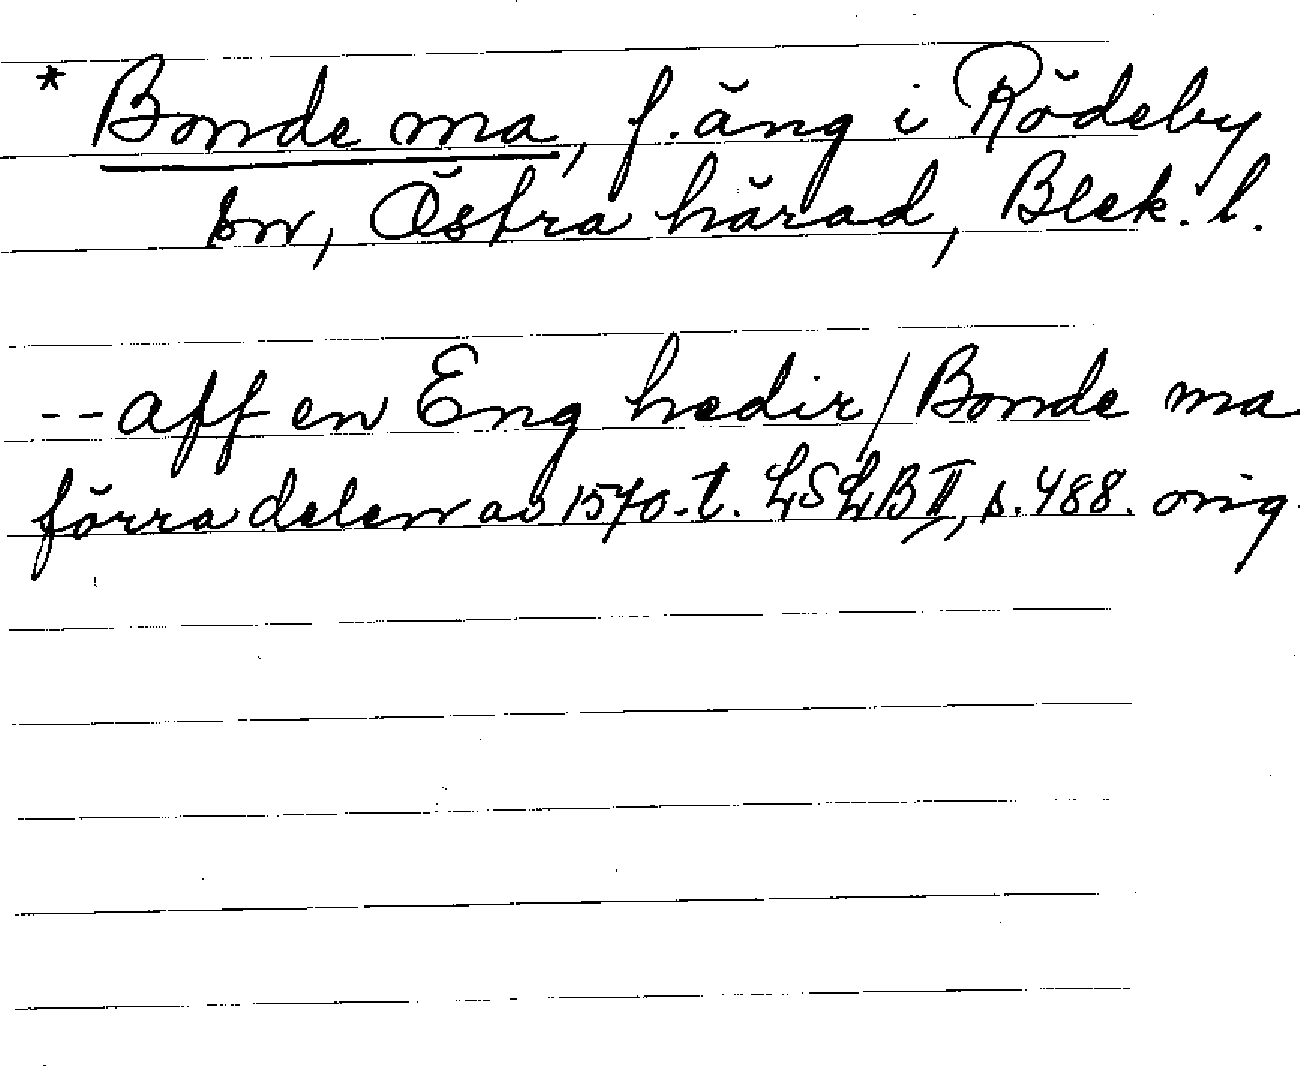 * Bonde ma, f. äng i Rödeby
sn, Östra härad, Blek. l.
-- aff en Eng hedir / Bonde ma
förra delen av 1570-t. LSLB II, s. 488. orig.